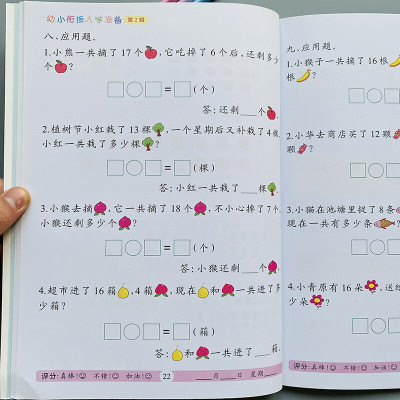 幼小衔接入学准备 第2辑
八、应用题。
1.小熊一共摘了17个，它吃掉了6个后，还剩多少
个？
□○□=□(个)
答：还剩___个
2.植树节小红栽了13棵，一个星期后又补栽了4棵
小红一共栽了多少棵？
□○□=□(棵)
答：小红一共栽了___棵
3.小猴去摘，它一共摘了18个，不小心掉了7个
小猴还剩多少个？
□○□=□(个)
答：小猴还剩___个
4.超市进了16箱，4箱，现在和一共进了多
少箱？
□○□=□(箱)
答：和一共进了___箱
评分：真棒！不错！加油！ 22 ___月___日 星期___
九、应用题。
1.小猴子一共摘了16根
根？
□○□
2.小华去商店买了12颗
颗？
□○
3.小猫在池塘里捉了8条
现在一共有多少条
□○
4.小青原有16朵，送给
少朵？
□○□
评分：真棒！不错！加油！